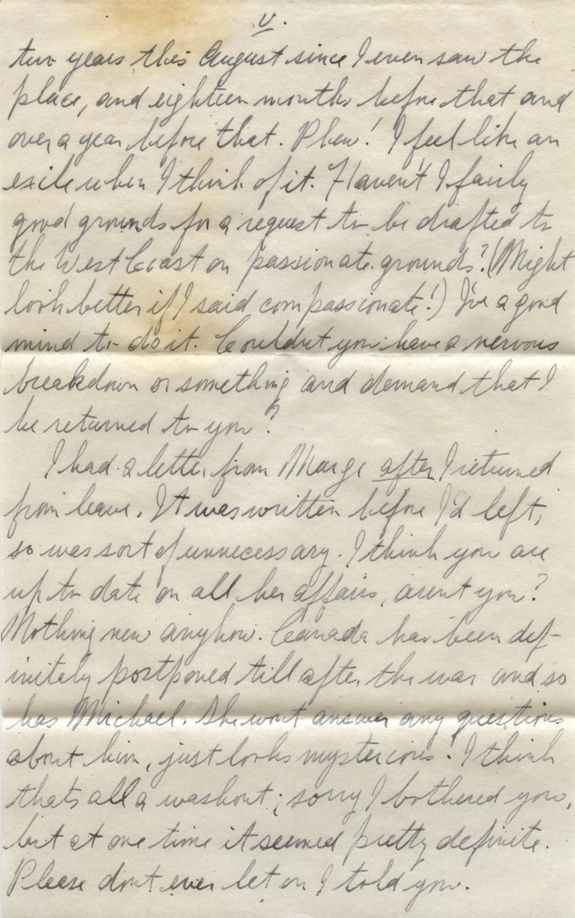 V.
two years this August since I even saw the
place, and eighteen months before that and
over a year before that. Phew! I feel like an
exile when I think of it. Haven't I fairly
good grounds for a request to be drafted to
the West Coast on passionate grounds? (Might
look better if I said compassionate!) I've a good
mind to do it. Couldn't you have a nervous
breakdown or something and demand that I
be returned to you?
I had a letter from Marge after I returned
from leave. It was written before I'd left,
so was sort of unnecessary. I think you are
up to date on all her affairs, aren't you?
Nothing new anyhow. Canada has been def-
initely postponed till after the war and so
has Michael. She won't answer any questions
about him, just looks mysterious! I think
thats all a washout; sorry I bothered you,
but at one time it seemed pretty definite.
Please don't ever let on I told you.